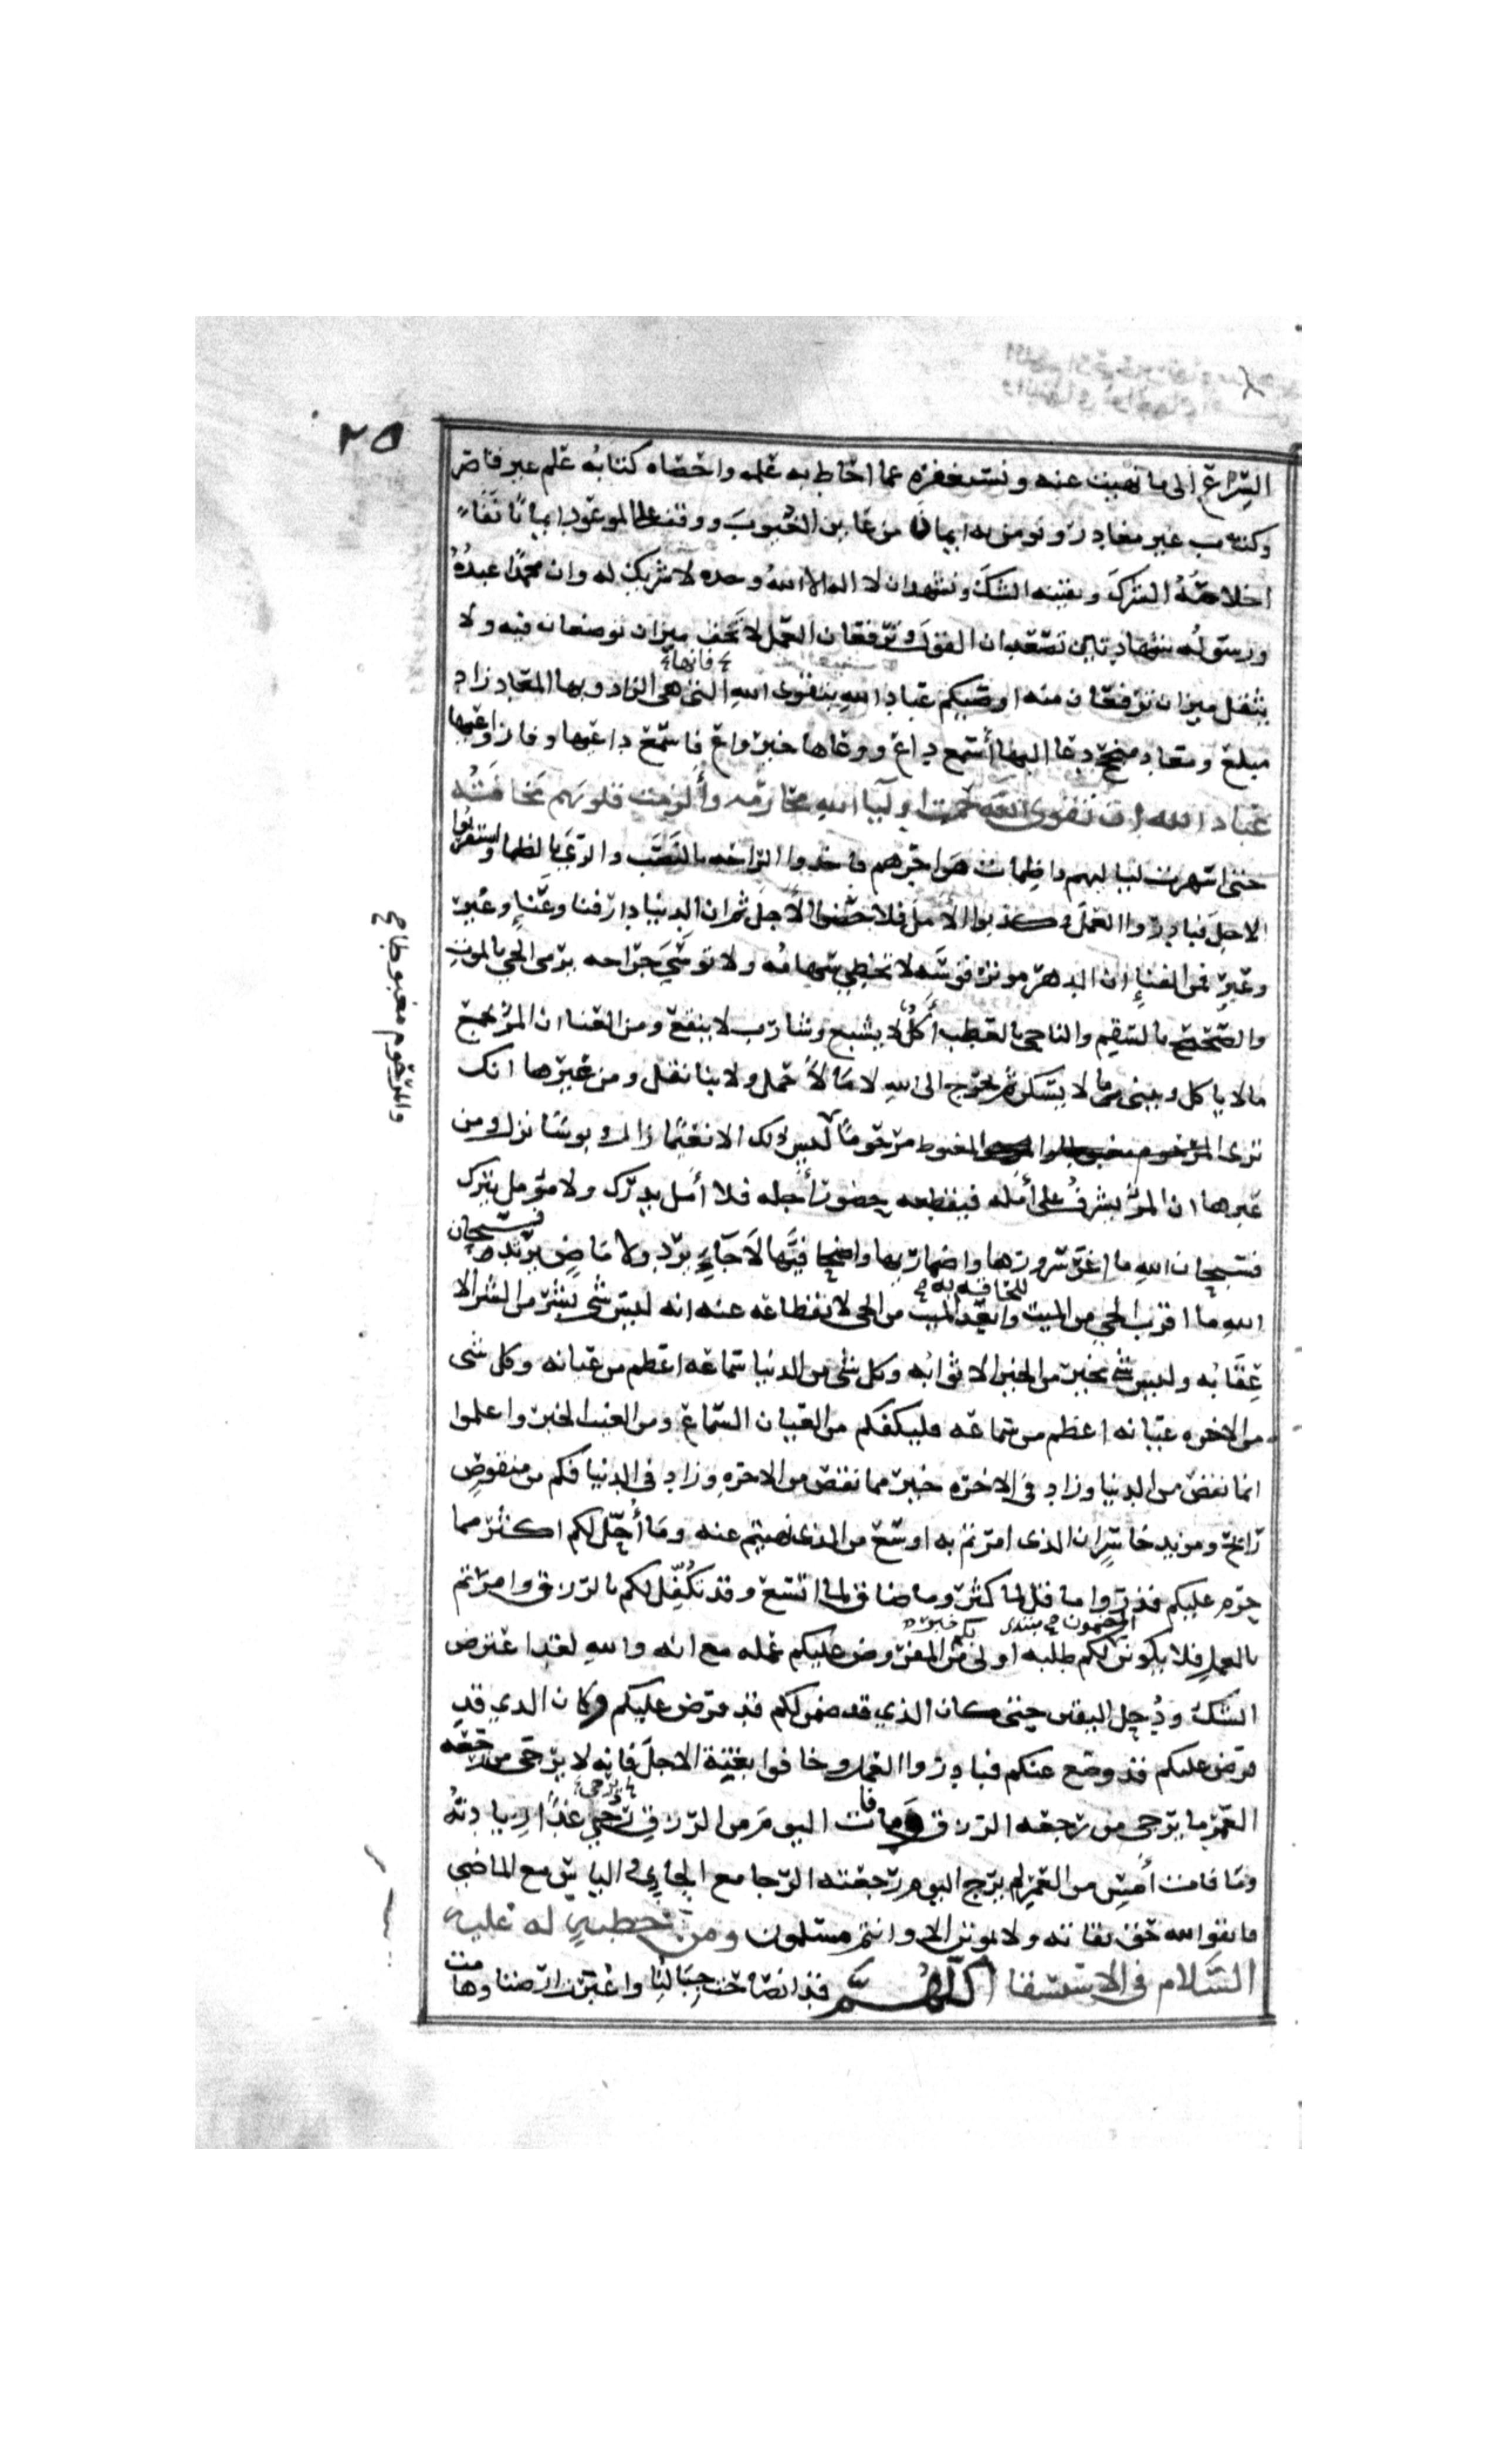 ٢٥
السراع الى ما نهيت عنه ونستغفره عما احاط به علمه واحصاه كتابه علم غير قاصر
وكتاب غير مغادر ونومن به ايمان من عاين الغيوب ووقف على الموعود ايمانا نفا
اخلاصه الشرك ويقينه الشك ونشهد ان لا اله الا الله وحده لا شريك له وان محمدا عبده
ورسوله شهادتين تصعدان القول وترفعان العمل لا يخف ميزان توضعان فيه ولا
يثقل ميزان ترفعان منه اوصيكم عباد الله بتقوى الله التي هي الزاد وبها المعاد زاد
فانها
مبلغ ومعاد منجح دعا اليها أسمع داع ووعاها خير واع فاسمع داعيها وفاز واعيها
عباد الله ان تقوى الله حمت اوليآ الله محارمه وألزمت قلوبهم مخافته
حتى اسهرت لياليهم واظمات هواجرهم فاخذوا الراحه بالنصب والري بالظما واستقربوا
الاجل فبادروا العمل وكذبوا الأمل فلاحظوا الأجل ثم ان الدنيا دار فنا وعناء وغير
وعبر فمن الفناء ان الدهر موتر قوسه لا تخطي سهامه ولا توسى جراحه يرمى الحي بالموت
والصحيح بالسقيم والناجي بالعطب أكل لا يشبع وشارب لا ينقع ومن العنا ان المر يجمع
مالا ياكل ويبنى ما لا يسكن ثم يخرج الى الله لا مالا حمل ولا بنا نقل ومن غيرها انك
ترى المرحوم مغبوطا والمغبوط مرحوما ليس ذلك الا نعيما زال وبوسا نزل ومن
والمرحوم مغبوطا صح
عبرها ان المر يشرف على أمله فيقطعه حضور أجله فلا أمل يدرك ولا مومل يترك
فسبحان الله ما اغر سرورها واظما ريها واضحا فيها لا جاء يرد ولا ماض يرتد فسبحان
الله ما اقرب الحي من الميت وابعد الميت من الحي لانقطاعه عنه انه ليس شي بشر من الشر الا
للحاقه به صح
عقابه وليس شي بخير من الخير الا ثوابه وكل شي من الدنيا سماعه اعظم من عيانه وكل شى
من الاخره عيانه اعظم من سماعه فليكفكم من العيان السماع ومن الغيب الخبر واعلموا
انما نقص من الدنيا وزاد في الاخره خير مما نقص من الاخره وزاد في الدنيا فكم من منقوص
رابح ومزيد خاسر ان الذى امرتم به اوسع من الذى نهيتم عنه وما أحل لكم اكثر مما
حرم عليكم فذروا ما قل لما كثر وما ضاق لما اتسع وقد تكفل لكم بالرزق وامرتم
بالعمل فلا يكونن المضمون لكم طلبه اولى من المفروض عليكم عمله مع انه والله لقد اعترض
الشك ودخل اليقين حتى كان الذي قد ضمن لكم قد فرض عليكم وكان الذي قد
فرض عليكم قد وضع عنكم فبادروا العمل وخافوا بغتة الاجل فانه لا يرجى من رجعه
العمر ما يرجى من رجعه الرزق ما فات اليوم من الرزق رجي غدا زيادته
يرجى
وما فات أمس من العمر لم يرج اليوم رجعته الرجا مع الجائي والياس مع الماضي
فاتقوا الله حق تقاته ولا تموتن الا وانتم مسلمون ومن خطبة له عليه
السلام في الاستسقا اللهم قد انصاحت جبالنا واغبرت ارضنا وهامت